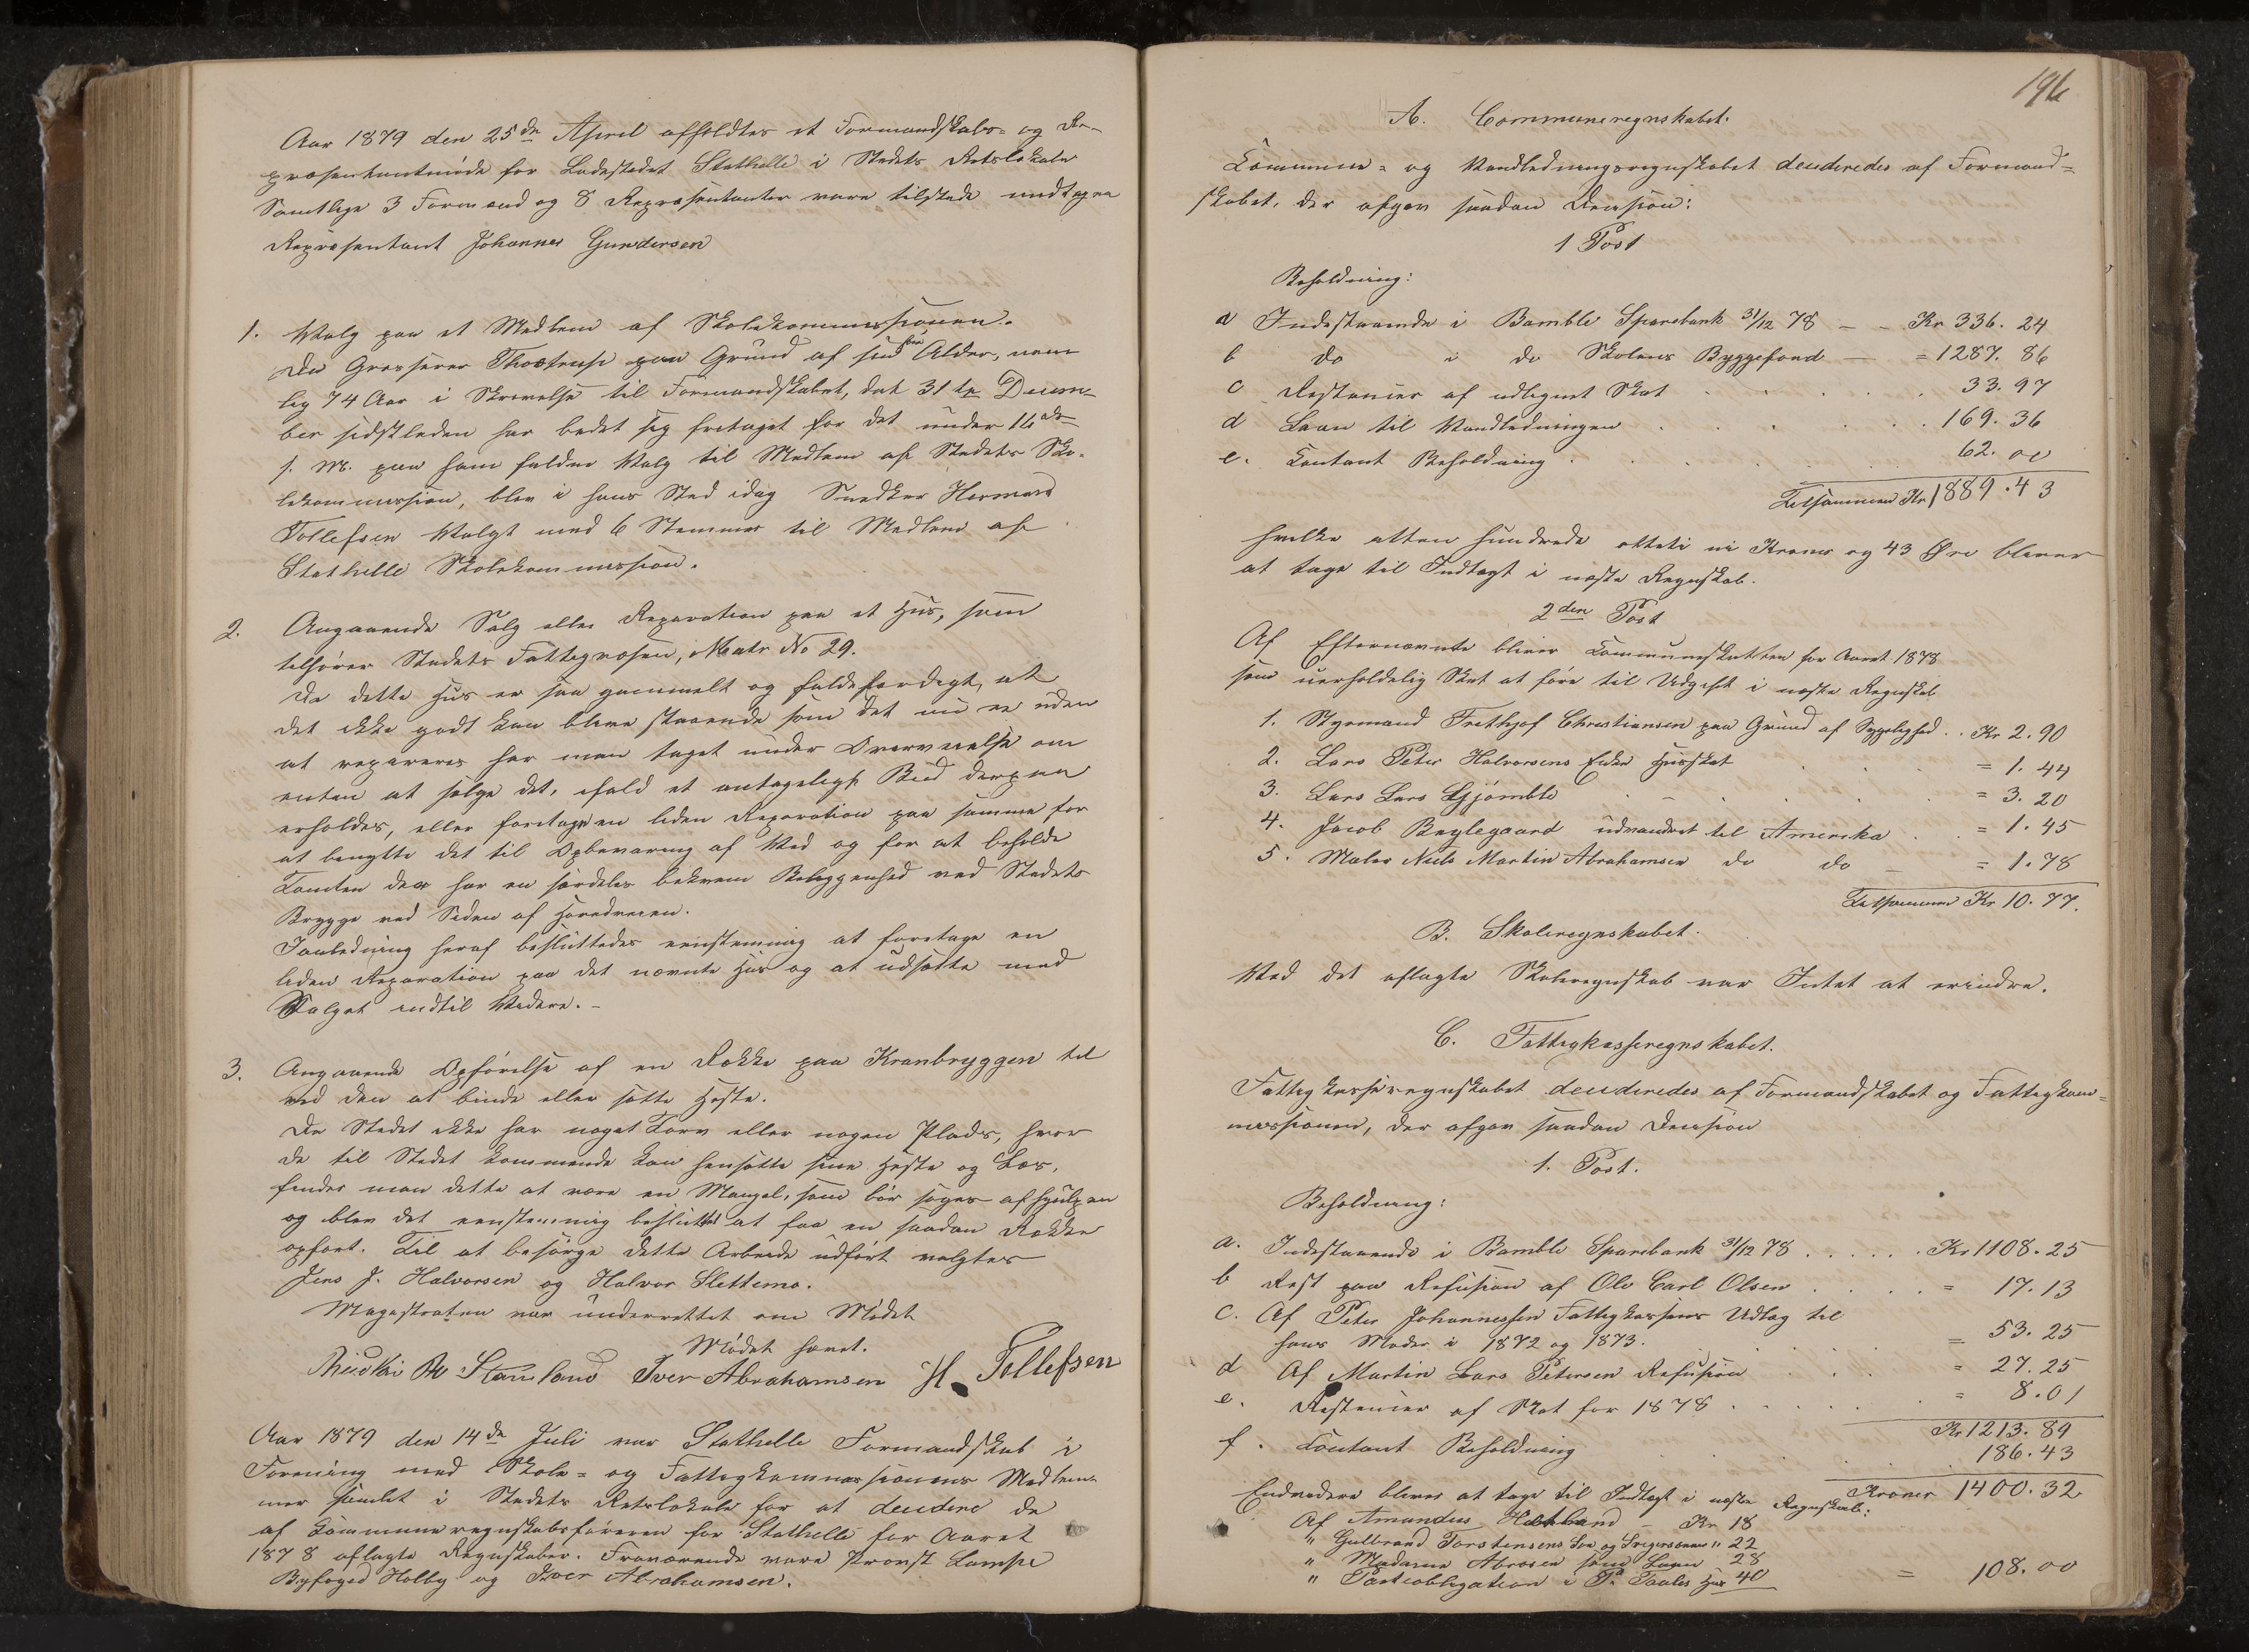 Aar 1879 den 25de April afholdtes et Formandskabs- og Re-
præsentantmøde for Ladestedet Stathelle i Stedets Retslokale
Samtlige 3 Formænd og 8 Repræsentanter vare tilstede undtagen
Repræsentant Johannes Gundersen
1. Valg paa et Medlem af Skolekommissionen.
Da Grosserer Thostrup paa Grund af sin Alder, nem
lig 74 Aar i Skrivelse til Formandskabet, dat 31te Decem-
ber sidstleden har bedet sig fritaget for det under 16de
s. M. paa ham faldne Valg til Medlem af Stedets Sko-
lekommission, blev i hans Sted idag Snedker Herman
Tollefsen Valgt med 6 Stemmer til Medlem af
Stathelle Skolekommission.
2. Angaaende Salg eller Reparation paa et Huus, som
tilhører Stedets Fattigvæsen, Matr No 29.
Da dette Hus er saa gammelt og faldefærdigt, at
det ikke godt kan blive staaende som det nu er uden
at repareres har man taget under Overveielse om
enten at sælge det, ifald et antageligt Bud derpaa
erholdes, eller foretage en liden Reparation paa samme for
at benytte det til Opbevaring af Ved og for at beholde
Tomten der har en særdeles bekvem Beliggenhed ved Stedets
Brygge ved Siden af Hovedveien.
I Anledning heraf besluttedes eenstemmig at foretage en
liden Reparation paa det nævnte Hus og at udsætte med
Salget indtil Videre. -
3. Angaaende Opførelse af en Række paa Kranbryggen til
ved den at binde eller sætte Heste.
Da Stedet ikke har noget Torv eller nogen Plads, hvor
de til Stedet kommende kan hensætte sine Heste og Læs,
finder man dette at være en Mangel, som bør søges afhjulpen
og blev det eenstemmig besluttet at faa en saadan Række
opført. Til at besørge dette Arbeide udført valgtes
Jens J. Halvorsen og Halvor Slettemo.
Magistraten var underrettet om Mødet
Mødet hævet.
Stamland Iver Abrahamsen H. Tollefsen
Aar 1879 den 14de Juli var Stathelle Formandskab i
Forening med Skole- og Fattigkommissionens Medlem-
mer samlet i Stedets Retslokale for at decidere de
af Kommuneregnskabsføreren for Stathelle for Aaret
1878 aflagte Regnskaber. Fraværende vare Provst Lampe
Byfoged Holby og Iver Abrahamsen.
196
A. Communeregnskabet.
Kommune- og Vandledningsregnskabet decideredes af Formand-
skabet, der afgav saadan Decision:
1 Post
Beholdning:
a Indestaaende i Bamble Sparebank 31/12 78 - - Kr 336. 24
b do i do Skolens Byggefond - = 1287. 86
c Restancer af udlignet Skat . . . . 33. 97
d Laan til Vandledningen . . . . . 169. 36
e. Contant Beholdning . . . . 62. 00
Tilsammen Kr 1889.43
hvilke atten hundrede otteti ni Kroner og 43 Øre bliver
at tage til Indtægt i næste Regnskab.
2den Post
Af Efternævnte bliver Kommuneskatten for Aaret 1878
som uerholdelig Skat at føre til Udgift i næste Regnskab
1. Styrmand Frithjof Christiansen paa Grund af Sygelighed . . Kr 2.90
2. Lars Peter Halvorsens Enke Husskat . . = 1. 44
3. Lars Lars Gjømble . . . = 3. 20
4. Jacob Brylegaard udvandret til Amerika . . = 1. 45
5. Maler Niels Martin Abrahamsen do do - = 1. 78
Tilsammen Kr 10. 77.
B. Skoleregnskabet.
Ved det aflagte Skoleregnskab var Intet at erindre.
C. Fattigkasseregnskabet.
Fattigkasseregnskabet decideredes af Formandskabet og Fattigkom-
missionen, der afgav saadan Decision
1. Post.
Beholdning:
a. Indestaaende i Bamble Sparebank 31/12 78 . . . . . Kr 1108. 25
b Rest paa Refusion af Ole Carl Olsen . . . . = 17. 13
c. Af Peter Johannessen Fattigkassens Udlæg til
hans Moder i 1872 og 1873. . . . = 53. 25
d Af Martin Lars Petersen Refusion . . . = 27. 25
e. Restancer af Skat for 1878 . . . . . = 8. 01
Kr 1213. 89
f. Contant Beholdning . . . . 186. 43
Kroner 1400. 32
Endvidere bliver at tage til Indtægt i næste Regnskab:
Af Amandus - Kr 18
" Gulbrand Torstensens 22
" Madame Abrosen som Laan 28
" Panteobligation i P. Paulis Hus 40 = 108. 00